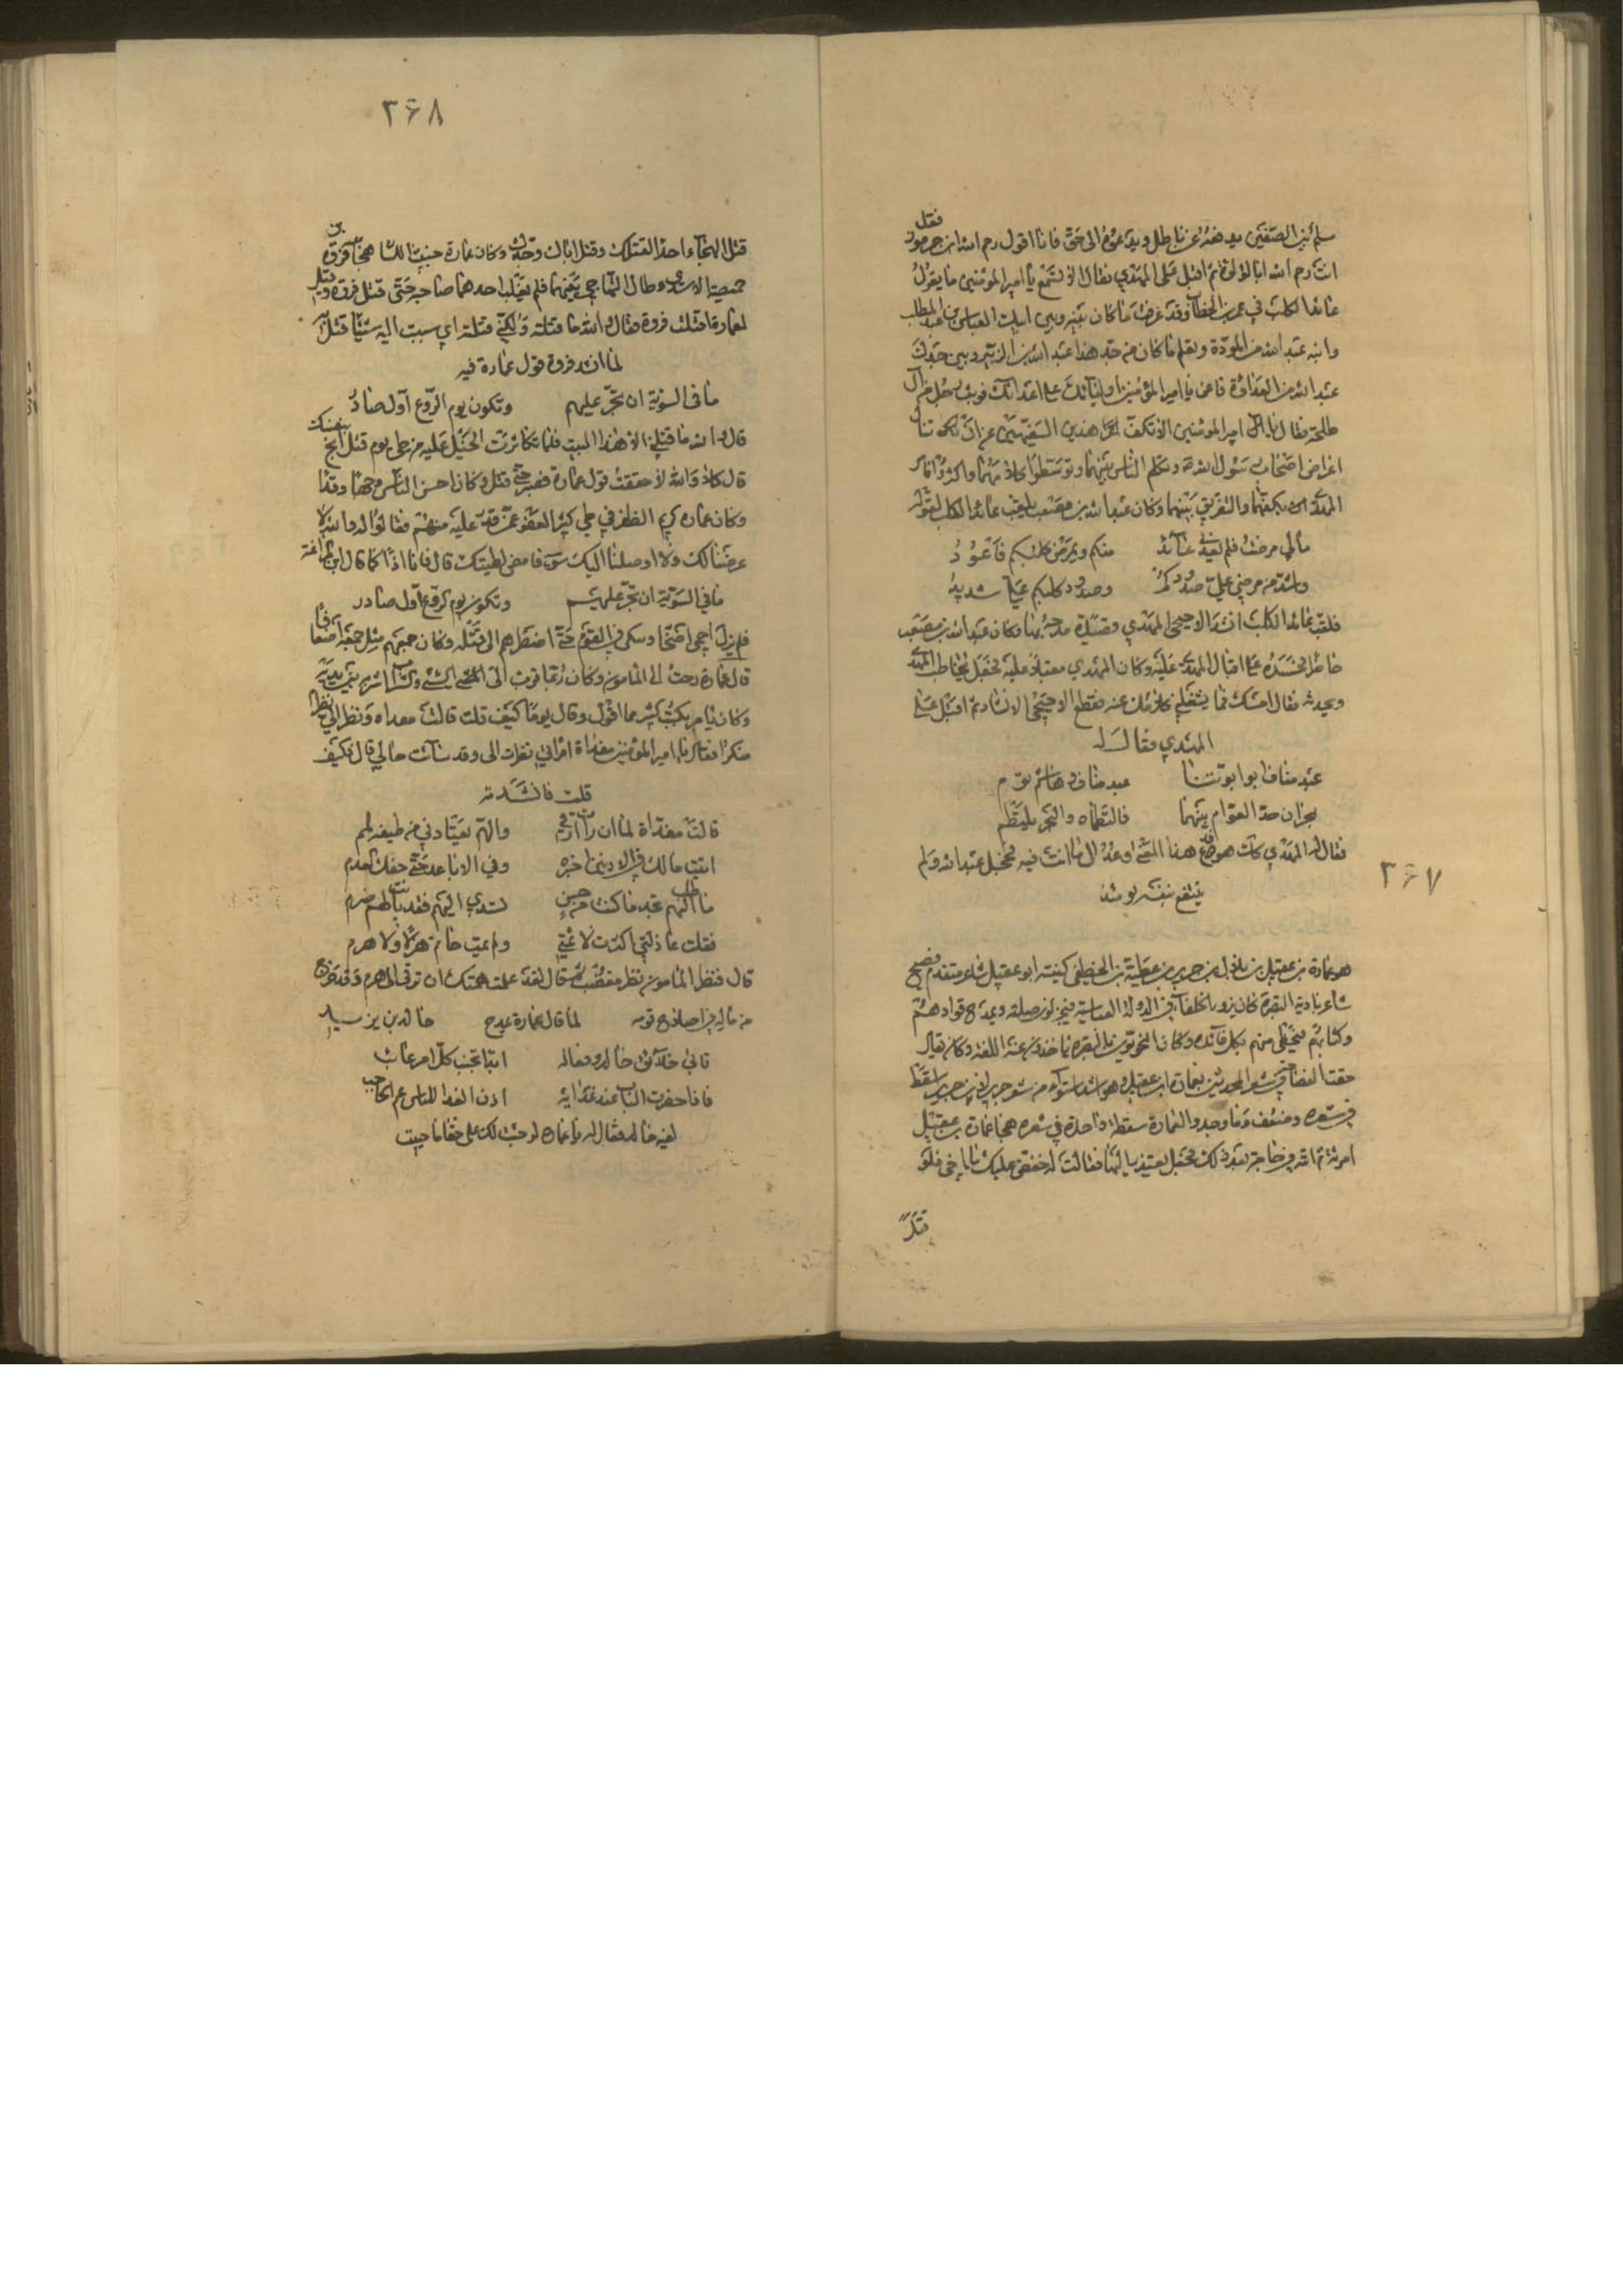 ٣۶٧
فقل
سلم بين الصفين يدفعه عن باطل ويدعوه الى حق فانا اقول رحم الله ابن جرموز
انت رحم الله ابا لؤلؤة ثم اقبل على المهدي فقال الا تسمع يا امير المؤمنين ما يقول
عائد الكلب في عمر بن الخطاب وقد عرفت ما كان بينه وبين ابيك العباس بن عبد المطلب
وابنه عبد الله من المودة وتعلم ما كان من جد هذا عبد الله بن الزبير وبين جدك
عبد الله من العداوة فاعن يا امير المؤمنين اولياءك على اعدائك فوثب رجل من آل
طلحة فقال يا امير المؤمنين الا تكف هذين السفيهين عن تناول
اعراض اصحاب رسول الله وتكلم الناس بينهما وتوسطوا كلامهما واكثروا فامر
المهدي بكفهما والتفريق بينهما وكان عبد الله بن مصعب يلقب عائد الكلب لقوله
مالي مرضت فلم يعدني عائد منكم ويمرض كلبكم فاعود
واشد من مرضي علي صدودكم وصدود كلبكم علي شديد
فلقب عائد الكلب انشد الاحيحي المهدي قصيدة مدحه بها وكان عبد الله بن مصعب
حاضرا فحسده على اقبال المهدي عليه وكان المهدي مقبلا عليه فجعل يخاطب المهدي
ويحدثه فقال امسك فما يشغلني كلامك عنه فقطع الاحيحي الانشاد ثم اقبل على
المهدي فقال له
عبد مناف ابو ابوتنا عبد مناف وهاشم توم
بحران حد العوام بينهما فالتطماه والبحر يلتطم
فقال له المهدي كان هو موضع هذا المعنى وعد الى ما انت فيه فخجل عبد الله ولم
ينتفع بنفسه يومئذ
هو عمارة بن عقيل بن بلال بن جرير بن عطية بن الخطفى كنيته ابو عقيل شاعر متقدم فصيح
شاعر بادية البصرة كان يزور الخلفاء في الدولة العباسية فيجزلون صلته ويمدح قوادهم
وكتابهم فيحظى منهم بكل فائدة وكان النحويون بالبصرة ياخذون عنه اللغة وكان يقال
ختمت الفصاحة في شعر المحدثين بعمارة ابن عقيل وهو اشد استواء من شعر جرير لان جرير اسقط
في شعره وضعف وما وجدوا لعمارة سقطة واحدة في شعره هجا عمارة بن عقيل
امرئة ثم اتته في حاجة بعد ذلك فجعل يعتذر اليها فقالت له خفض عليك يا اخي فلو
قتل
٣۶٨
قتل الهجاء احدا لقتلك وقتل اباك وجدك وكان عمارة خبيث اللسان هجا فروة بن
حميصة الاسدي وطال التهاجي بينهما فلم يغلب احدهما صاحبه حتى قتل فروة وقيل
لعمارة قتلت فروة فقال والله ما قتلته ولكني قتلته اي سببت اليه سببا قتل به
لما انشد فروة قول عمارة فيه
ما في السوية ان تجر عليهم وتكون يوم الروع اول صادر
قال والله ما قتلني الا هذا البيت فلما تكاثرت الخيل عليه من طي يوم قتل انج بنفسك
قال كلا والله لا حققت قول عمارة فصبر حتى قتل وكان احسن الناس وجها وقدا
وكان عماره كريم الظفر في طي كثير العفو عمن قدر عليه منهم فقالوا له والله لا
عرضنا لك ولا اوصلنا اليك سوء فامض لطيتك قال فانا اذا كما قال ابن المراغة
ما في السوية ان تجر عليهم وتكون يوم الروع اول صادر
فلم يزل يحمي اصحابه وينكي في القوم حتى اضطرهم الى قتله وكان جمعهم مثل جمعه اضعافا
قال عمارة رحت الى المامون وكان ربما قرب الى الشي من الشراب اشربه بين يديه
وكان يامر بكتب كثير مما اقول وقال يوما كيف قلت قالت مفداة ونظر الي نظرا
منكرا فقلت يا امير المؤمنين مفداة امراتي نظرت الى وقد ساءت حالي قال فكيف
قلت فانشدته
قالت مفداة لما ان رات ارقي والهم يعتادني من طيفه لمم
انهبت مالك في الادنين آخره وفي الاباعد حتى حفك العدم
فاطلب اليهم تجد ما كنت من حسن تسدي اليهم فقد باتت لهم صرم
فقلت عاذلتي اكثرت لائمتي ولم يمت حاتم هزلا ولا هرم
قال فنظر المامون نظر مغضب ثم قال لقد علت همتك ان ترقى الى هرم وقد خرج
من ماله في اصلاح قومه لما قال عمارة يمدح خالد بن يزيد
تابى خلائق خالد وفعاله الا تجنب كل امر عائب
فاذا حضرت الباب عند غدائه اذن الغدا للناس رغم الحاجب
لقيه خالد فقال له يا عماره اوجبت لك على حقا ما حييت